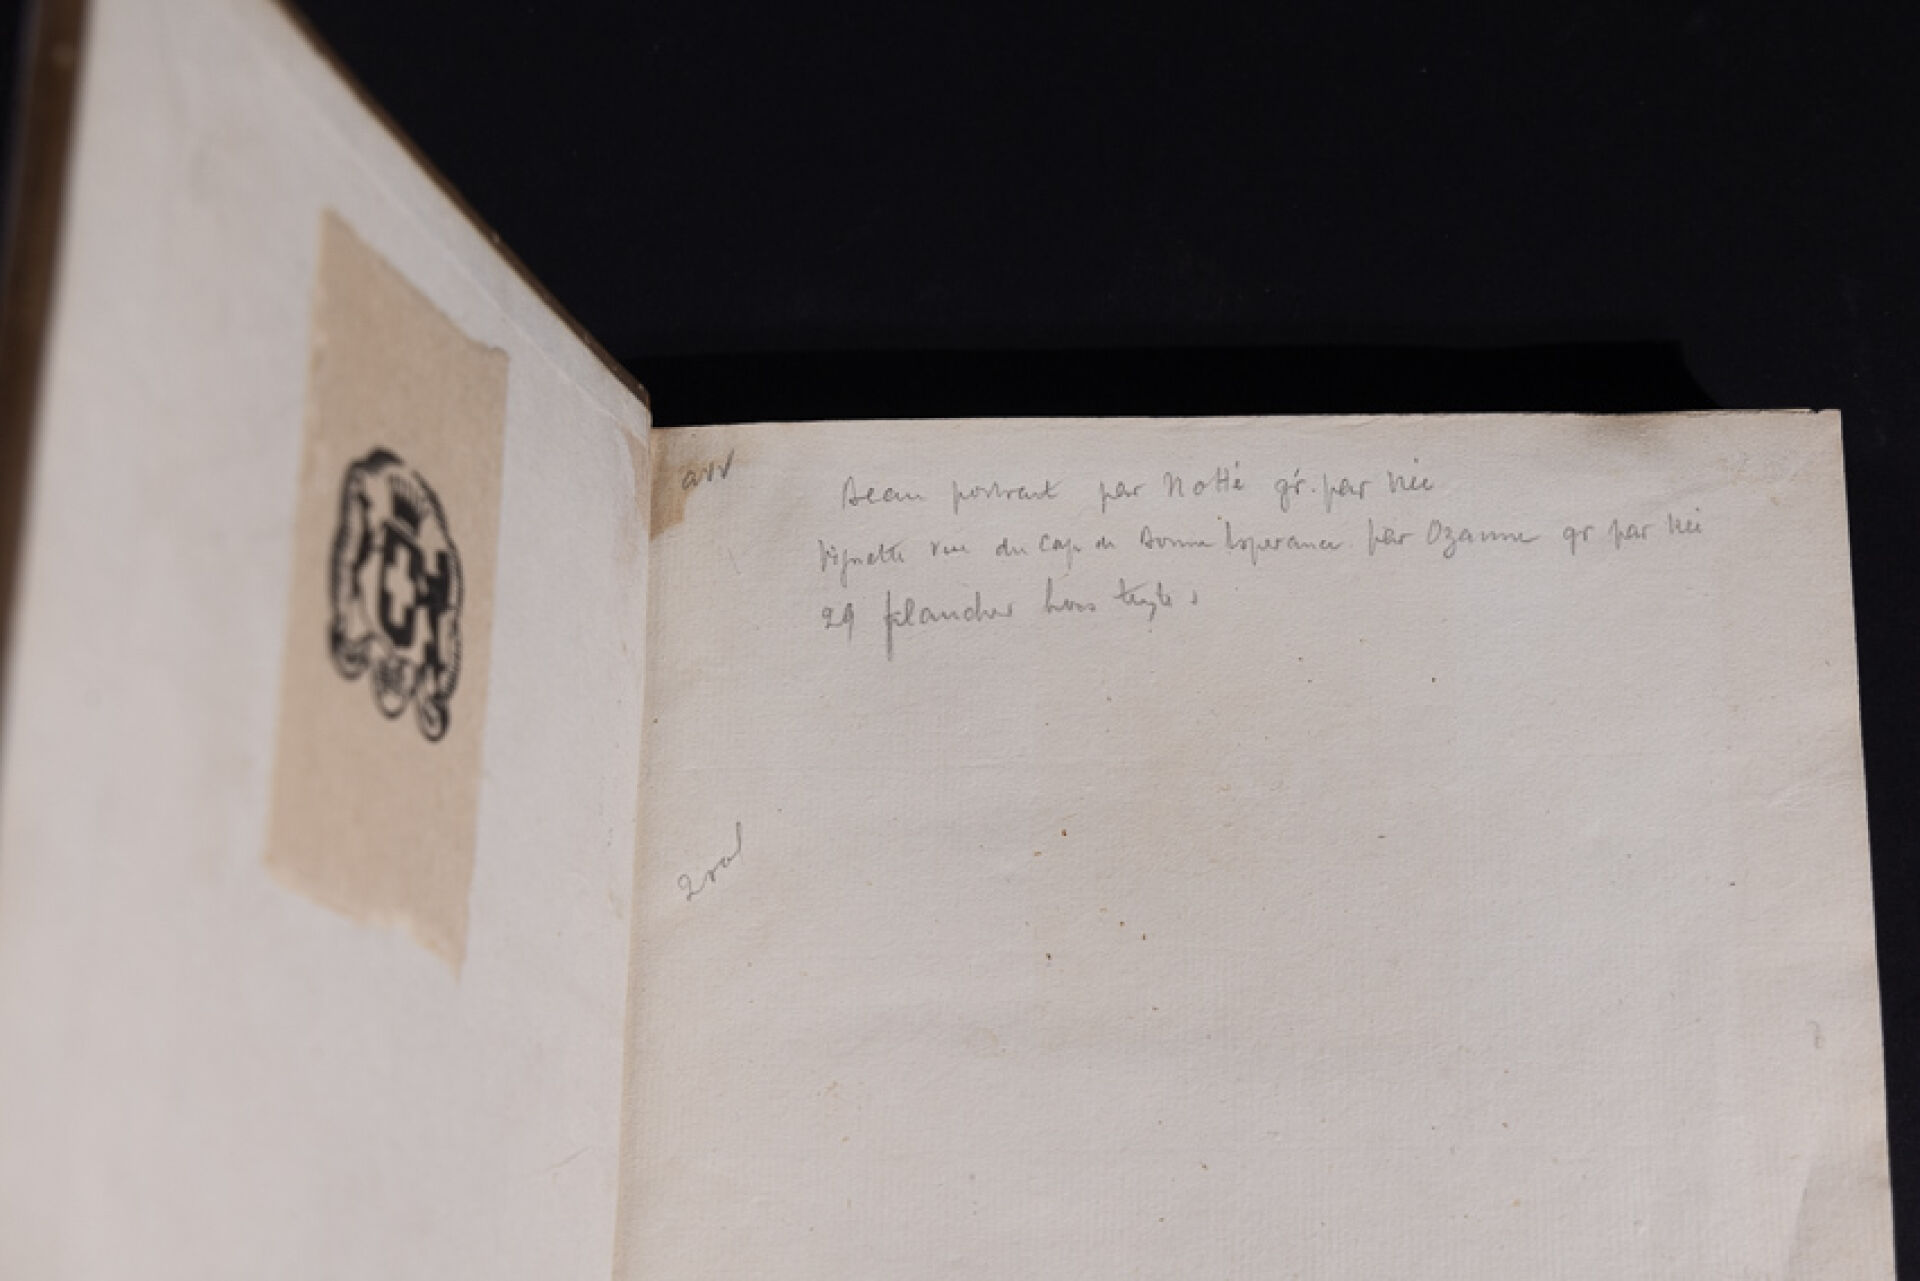 arr
Beau portrait par Notté gr. par Née
Vignette vue du Cap de Bonne Esperance par Ozanne gr par Née
29 planches hors texte
2 vol